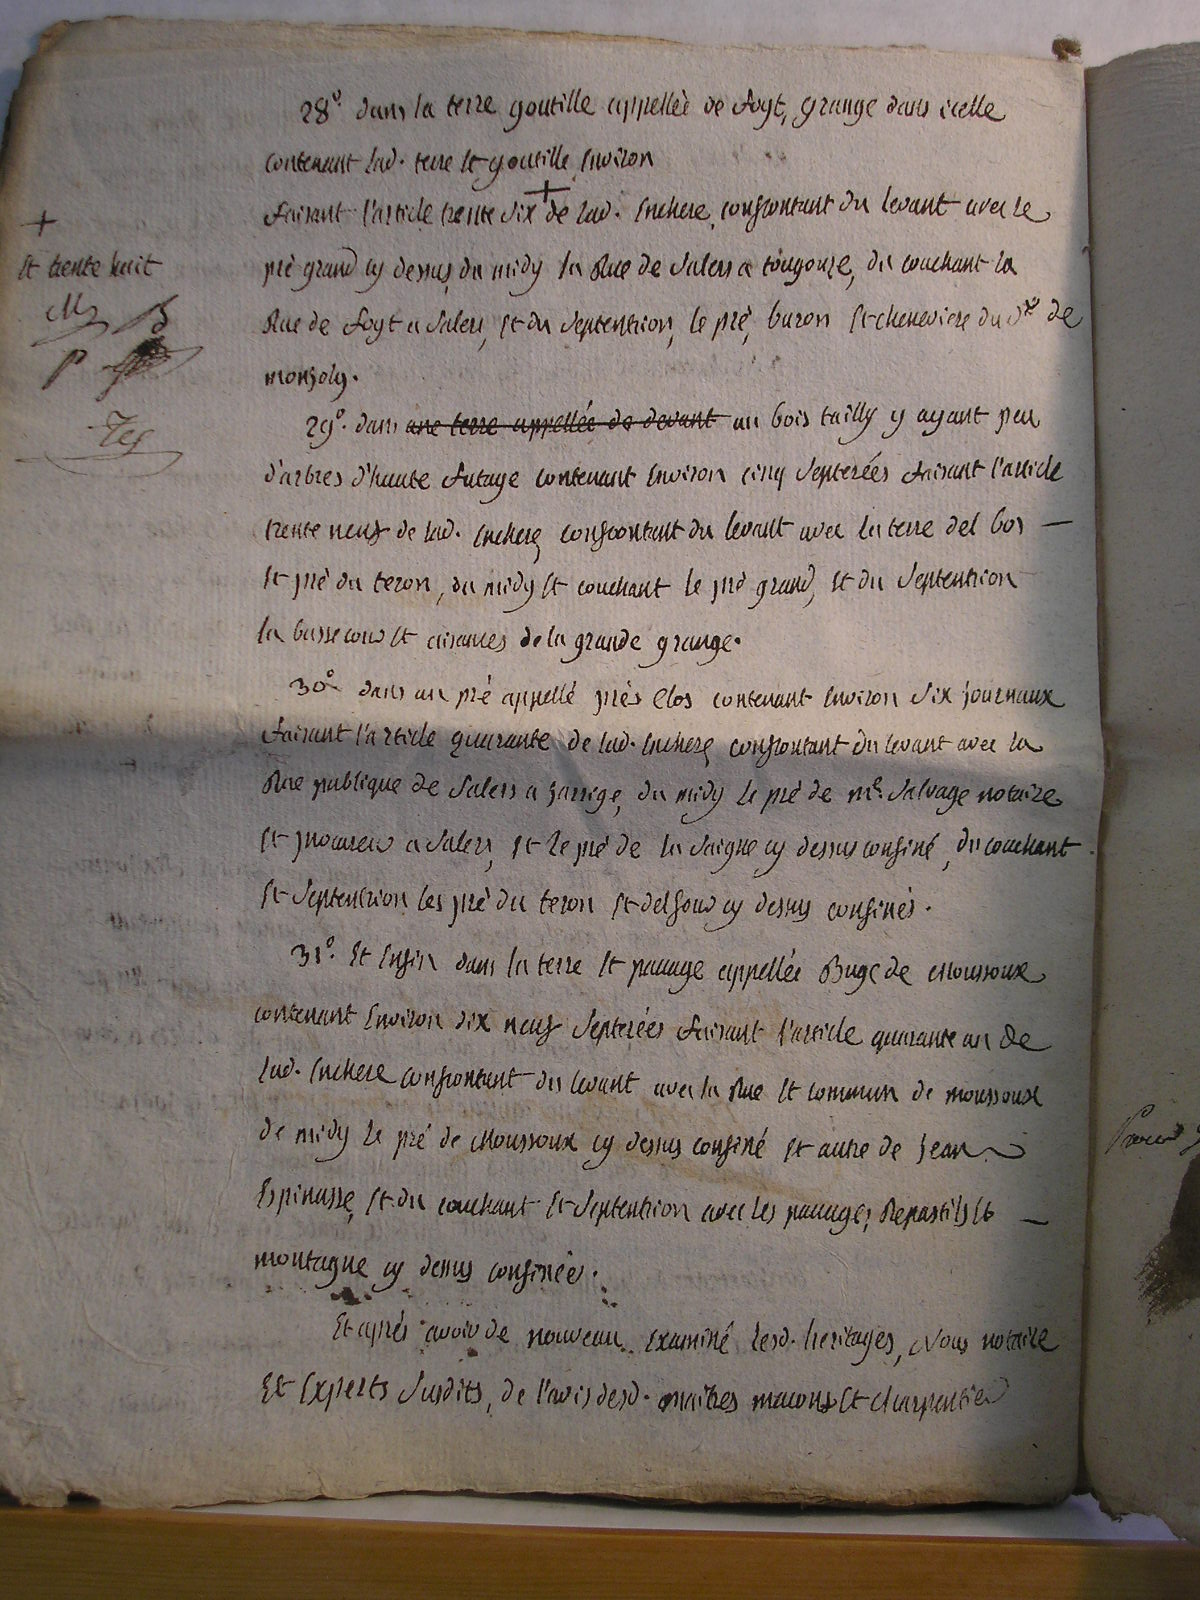 28° dans la terre goutille appellée de foyt, grange dans icelle
contenant lad. terre et goutille environ
faisant l'article trente six + de lad. enchere, confrontant du levant avec le
+
et trente huit
pré grand cy dessus, du midy la Rue de Salers a tougouze, du couchant la
Rue de foyt a Salers, et du Septentrion, le pré, buron et cheneviere du Sr de
monjoly.
29°. dans une terre appellée de devant un bois tailly y ayant peu
d'arbres d'haute futaye contenant environ cinq Septerées faisant l'article
trente neuf de lad. enchere, confrontant du levant avec la terre del bos
et pré du teron, du midy et couchant le pré grand, et du Septentrion
la basse cour et aisances de la grande grange.
30° dans un pré appellé prés Clos contenant environ Six journaux
faisant l'article quarante de lad. enchere, confrontant du levant avec la
Rue publique de Salers a jarrige, du midy le pré de me Salvage notaire
et procureur a Salers, et le pré de la Saigne cy dessus confiné, du couchant
et Septentrion les pré du teron et delfour cy dessus confinés.
31°. Et enfin dans la terre et pacage appellée Buge de Moussoux
contenant environ dix neuf Septerées faisant l'article quarante un de
lad. enchere confrontant du levant avec la Rue et commun de moussoux
de midy le pré de Moussoux cy dessus confiné et autre de jean
Espinasse, et du couchant et Septentrion avec les pacages, Repastils et
montagne cy dessus confinée.
Et aprés avoir de nouveau examiné lesd. heritages, Nous notaire
Et Experts Susdits, de l'avis desd. maitres macons et charpentier